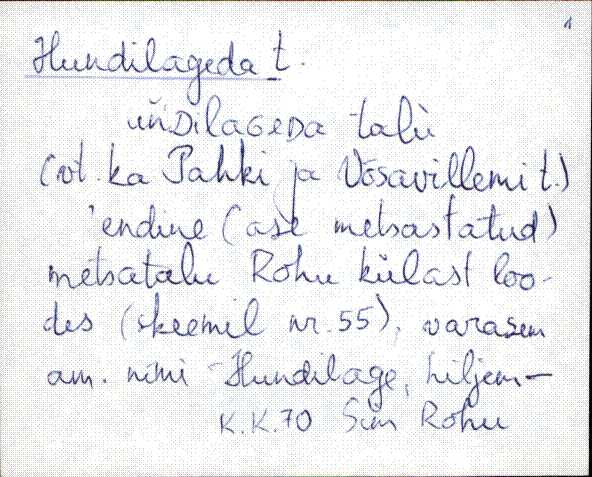 Hundilageda t.
uńDilaGeDa talù
(vt. ka Pahki ja Võsavillemi t.)
'endine (ase metsastatud)
metsatalu Rohu külast loo-
des (skeemil nr. 55), varasem
am. nimi Hundilage, hiljem–
K.K.70 Sim Rohu